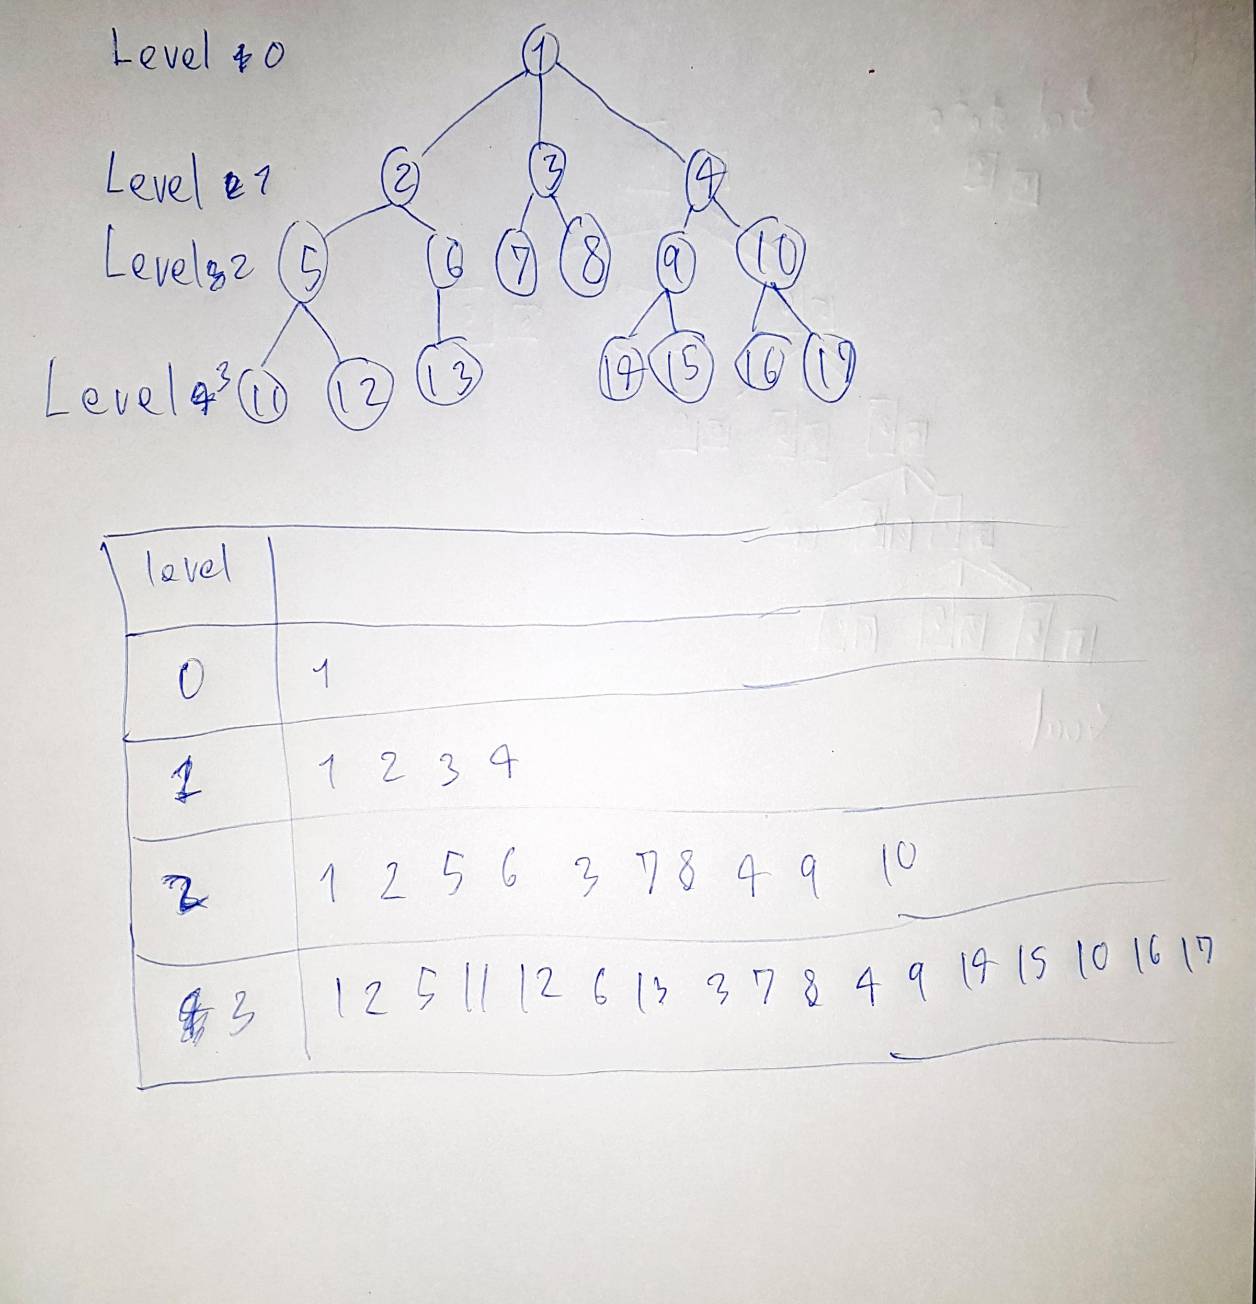 Level 0
1
Level 1
2 3 4
Level 2
5 6 7 8 9 10
Level 3
11 12 13 14 15 16 17
level
0 1
1 1 2 3 4
2 1 2 5 6 3 7 8 4 9 10
3 1 2 5 11 12 6 13 3 7 8 4 9 14 15 10 16 17